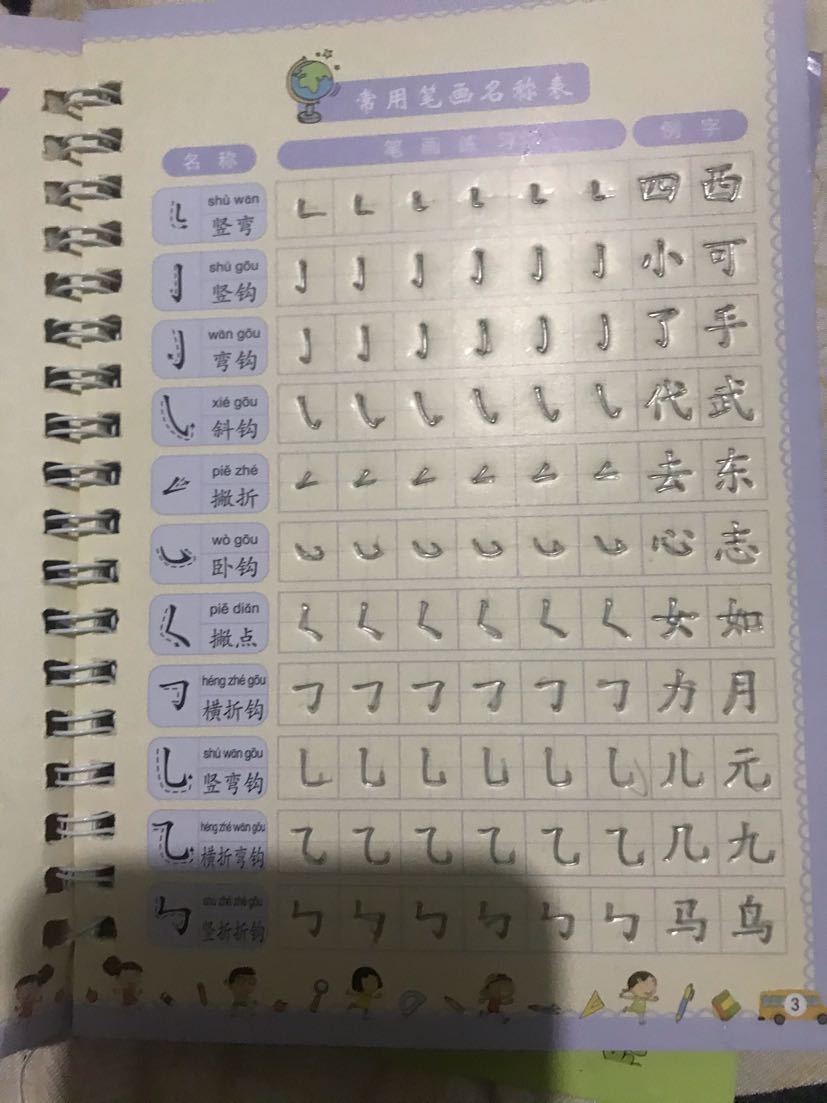 常用笔画名称表
名称 笔画练习 例字
shù wān
竖弯 四 西
shù gōu
竖钩 小 可
wān gōu
弯钩 了 手
xié gōu
斜钩 代 武
piě zhé
撇折 去 东
wò gōu
卧钩 心 志
piě diǎn
撇点 女 如
héng zhé gōu
横折钩 力 月
shù wān gōu
竖弯钩 儿 元
héng zhé wān gōu
横折弯钩 几 九
shù zhé zhé gōu
竖折折钩 马 鸟
3